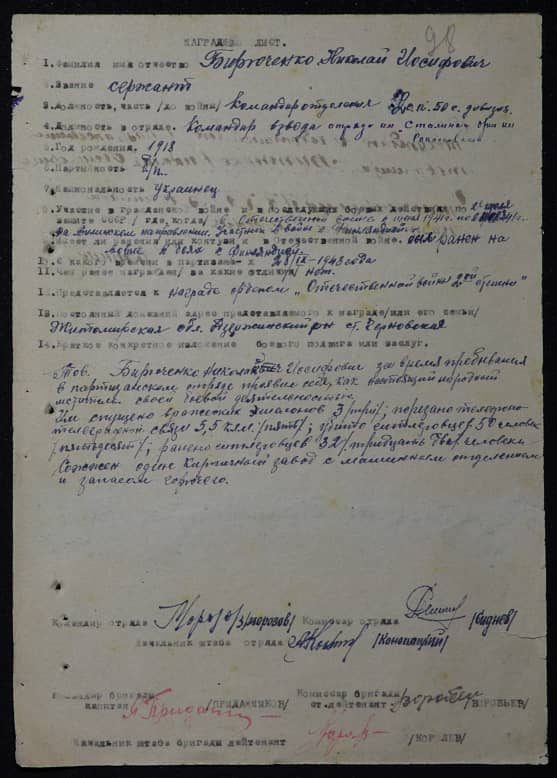 98
НАГРАДНОЙ ЛИСТ.
1. Фамилия имя отчество Бирюченко Николай Иосифович
2. Звание сержант
3. Должность, часть /до войны/ командир отделения с.п. 50 с. дивиз.
4. Должность в отряде. командир взвода отряда им. Сталина бриг. им
5. Год рождения. 1918
6. Партийность б/п.
7. Национальность украинец
8. Участие в гражданской войне и в последующих боевых действиях по
защите СССР /где, когда/ в Отечественной войне с июля 1941 г. по
на Минском направлении. Участник в войне с Финляндией
9. Имеет ли ранения или контузии в Отечественной войне. был ранен на
в боях с Финляндией
10. С какого времени в партизанах с 23/IX-1943 года
11. Чем ранее награжден/ за какие отличия/ нет.
12. Представляется к награде орденом "Отечественной войны 2ой степени"
13. Постоянный домашний адрес представляемого к награде/или его семьи/
Житомирская обл. Дзержинский рн ст. Черновская
14. Краткое конкретное изложение боевого подвига или заслуг.
Тов. Бирюченко Николай Иосифович за время пребывания
в партизанском отряде проявил себя, как настоящий народный
мститель своей боевой деятельностью.
Им спущено вражеских эшалонов 3 /три/; порезано телефоно-
телеграфной связи 5,5 клм. /пять/; убито гитлеровцев 50 человек
/пятьдесят/; ранено гитлеровцев 32 /тридцать два/ человека
Сожжен один кирпичный завод с машинным отделением
и запасом горючего.
Командир отряда Морозов /Морозов/ Комиссар отряда /Сиднев/
Начальник штаба отряда /Конопацкий/
Командир бригады Комиссар бригады
капитан /ПРИДАННИКОВ/ ст. лейтенант Воробьев /ВОРОБЬЕВ/
Начальник штаба бригады лейтенант /КОРОЛЕВ/